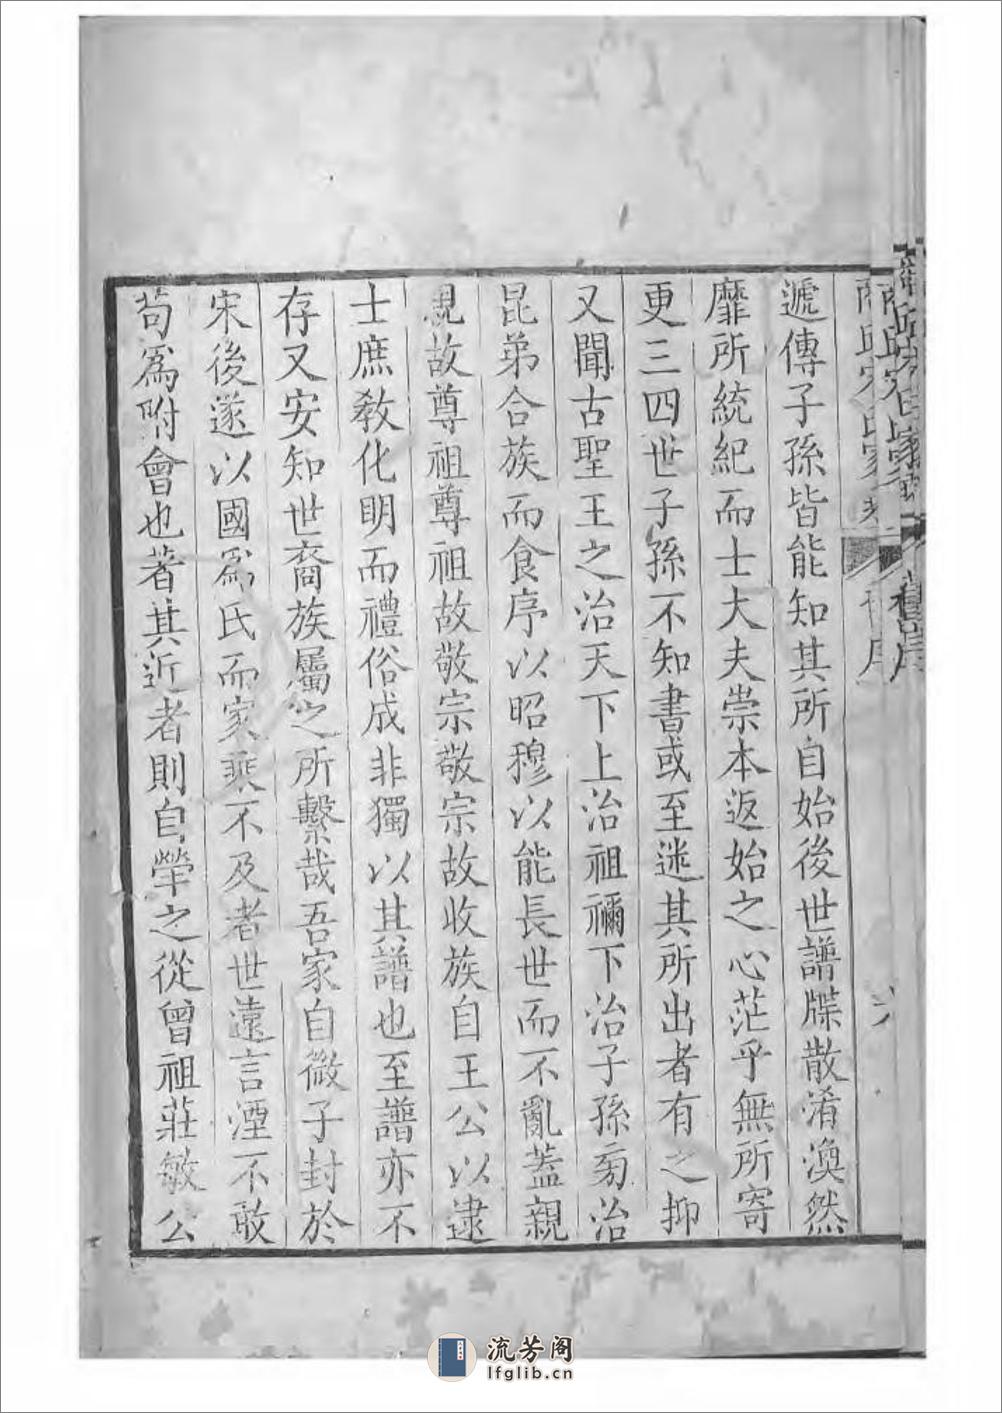 商丘宋氏家乘 舊序 六
遞傳子孫皆能知其所自始後世譜牒散淆渙然
靡所統紀而士大夫崇本返始之心茫乎無所寄
更三四世子孫不知書或至迷其所出者有之抑
又聞古聖王之治天下上治祖禰下治子孫旁治
昆弟合族而食序以昭穆以能長世而不亂蓋親
親故尊祖尊祖故敬宗敬宗故收族自王公以逮
士庶敎化明而禮俗成非獨以其譜也至譜亦不
存又安知世裔族屬之所繫哉吾家自微子封於
宋後遂以國爲氏而家乘不及者世遠言湮不敢
苟爲附會也著其近者則自𤇺之從曾祖莊敏公
流芳阁
lfglib.cn